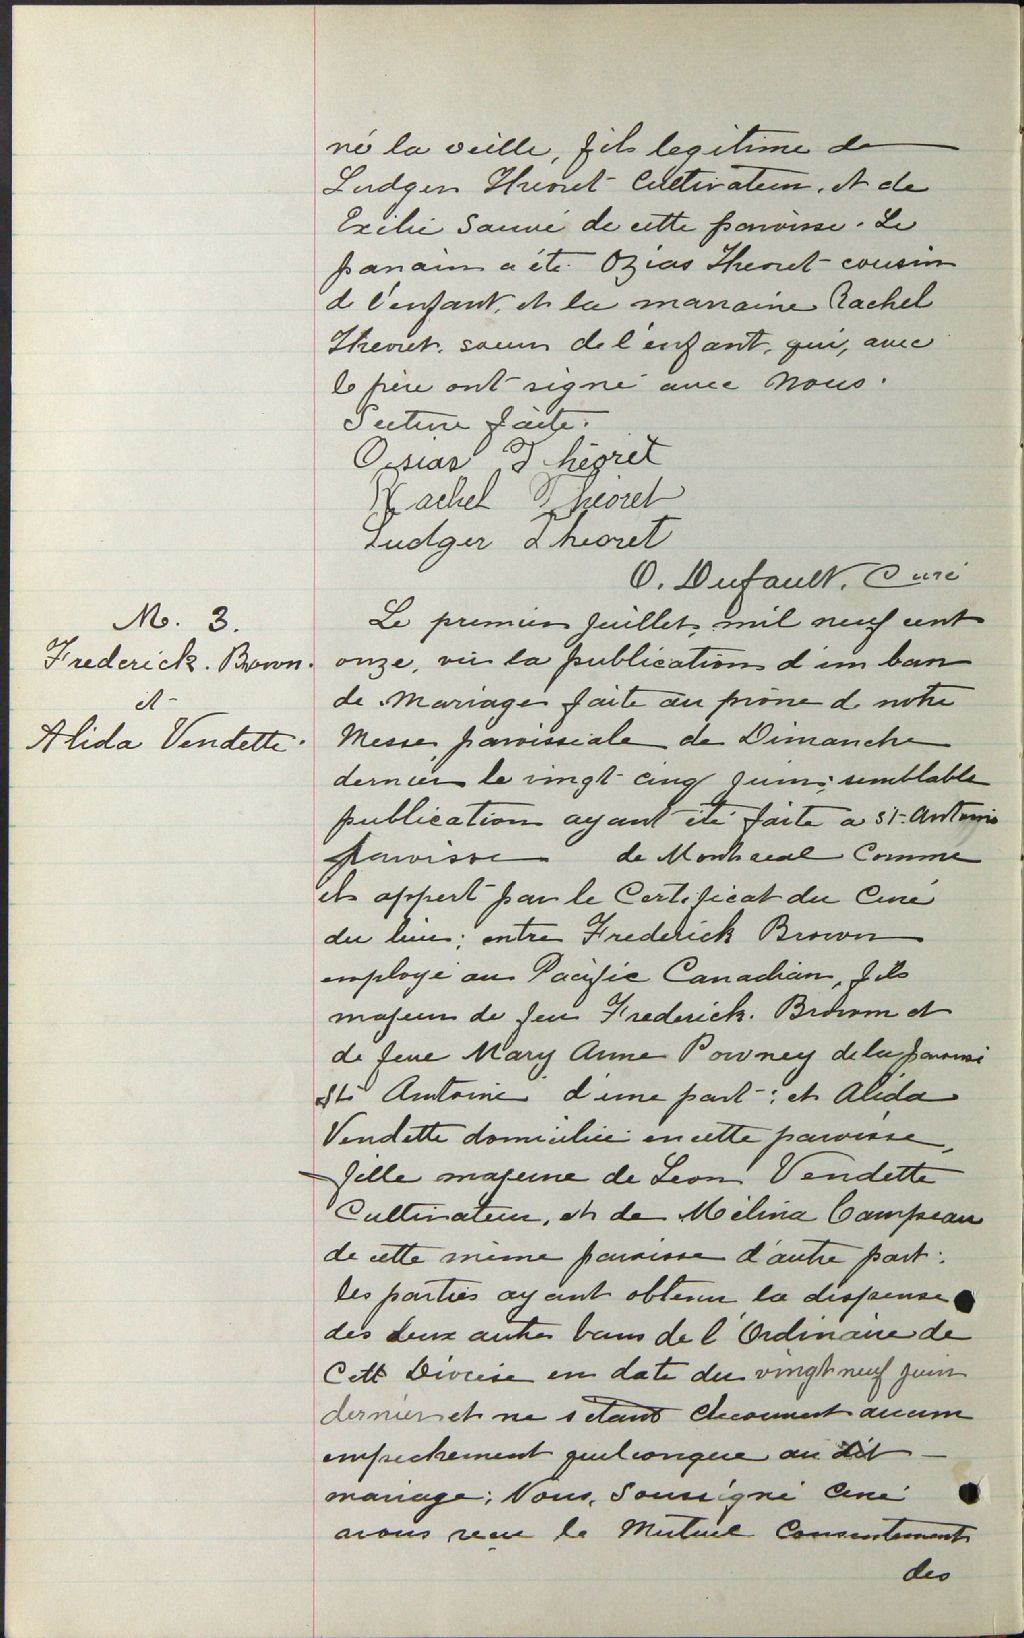 né la veille, fils legitime de
Ludger Théoret Cultivateur, et de
Exilie Sauvé de cette paroisse. Le
parrain a été Ozias Theoret cousin
de l'enfant, et la marraine Rachel
Theoret, soeur de l'enfant, qui, avec
le père ont signé avec Nous.
Lecture faite.
Osias Théorêt
Rachel Théoret
Ludger Theoret
O. Dufault. Curé
M. 3.
Frederick. Brown.
et
Alida Vendette.
Le premier Juillet, mil neuf cent
onze, vu la publication d'un ban
de Mariage faite au prône de notre
Messe paroissiale de Dimanche
dernier le vingt-cinq Juin; semblable
publication ayant été faite a St. Antoine
paroisse de Montreal Comme
il appert par le Certificat du Curé
du lieu; entre Frederick Brown
employé au Pacific Canadian, fils
majeur de feu Frederick. Brown et
de feue Mary Anne Powney de la paroisse
St Antoine d'une part; et Alida
Vendette domiciliée en cette paroisse,
fille majeure de Leon Vendette
Cultivateur, et de Mélina Campeau
de cette même paroisse d'autre part:
les parties ayant obtenu la dispense
des deux autres bans de l'Ordinaire de
Cett Diocèse en date du vingt neuf juin
dernier et ne s'étant découvert aucun
empechement quelconque au dit
mariage; Nous, Soussigné Curé
avons reçu le Mutuel Consentement
des